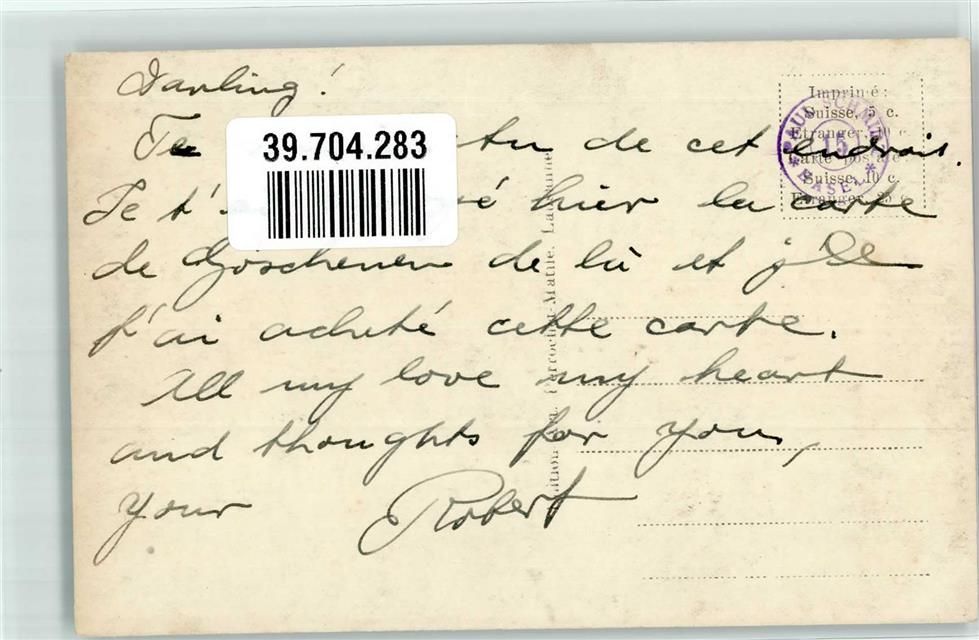 Darling!
Imprimé:
Suisse, 5 c.
Etranger, 10 c.
Carte postale
Suisse, 10 c.
PAUL SCHMID
15
* BASEL *
39.704.283
Te tu de cet endroit.
Je t' hier la carte
de Göschenen de là et je
t'ai acheté cette carte.
All my love my heart
and thoughts for you,
your Robert